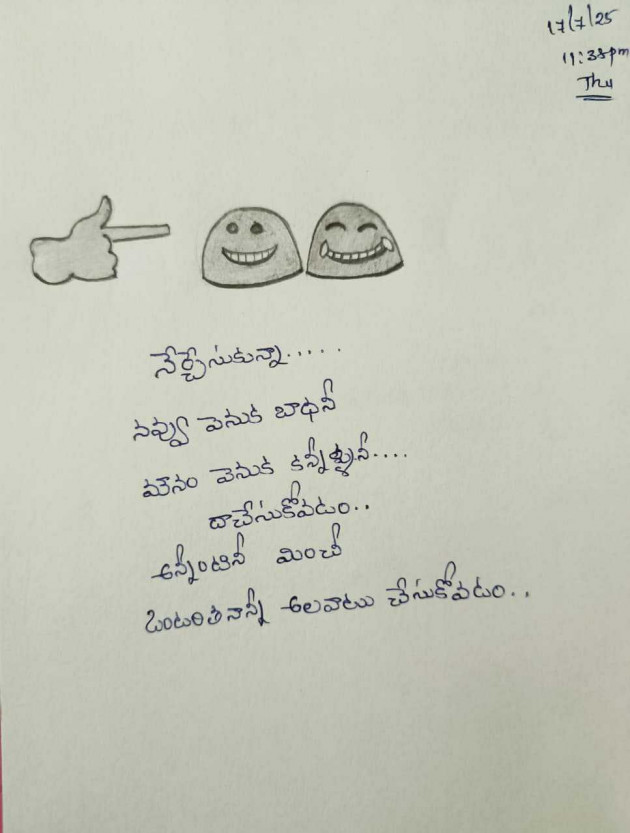 17/7/25
11:38pm
Thu
నేర్చేసుకున్నా.....
నవ్వు వెనుక బాధనీ
మౌనం వెనుక కన్నీళ్ళనీ....
దాచేసుకోవటం..
అన్నింటినీ మించీ
ఒంటరితనాన్నీ అలవాటు చేసుకోవటం..